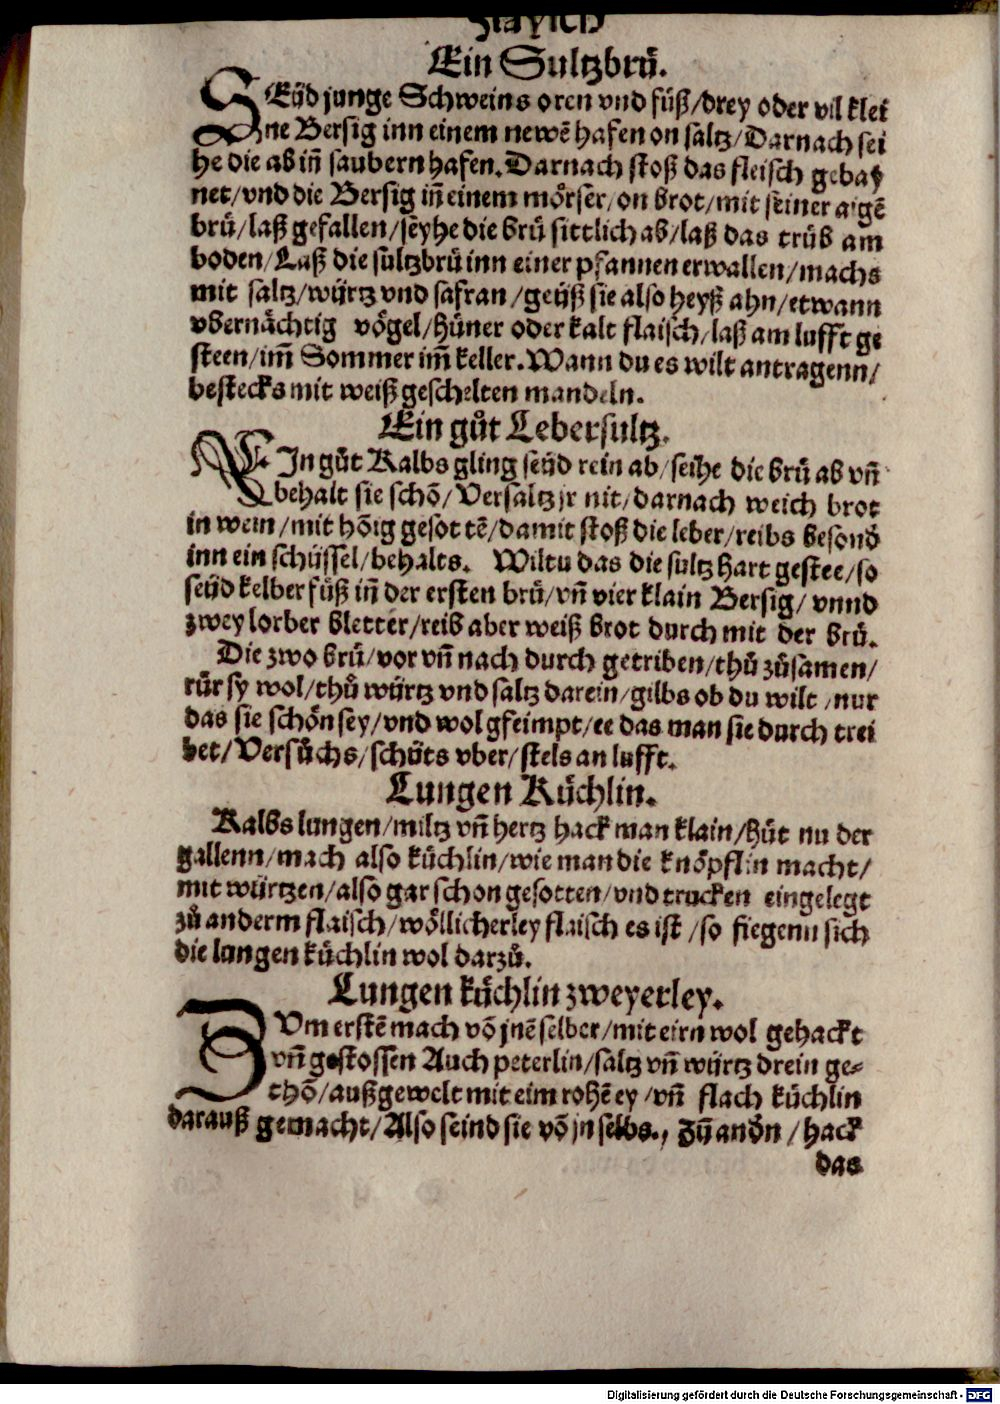 Flaysch
Ein Sultzbrů.
SEüd junge Schweins oren vnd füß/drey oder vil klei
ne Bersig inn einem newē hafen on saltz/Darnach sei
he die ab iñ saubern hafen. Darnach stoß das fleisch gebay
net/vnd die Bersig iñ einem mörser/on brot/mit seiner aigē
brü/laß gefallen/seyhe die brü sittlich ab/laß das trüb am
boden/Laß die sultzbrü inn einer pfannen erwallen/machs
mit saltz/würtz vnd safran/geüß sie also heyß ahn/etwann
vbernächtig vögel/Hüner oder kalt flaisch/laß am lufft ge
steen/im̄ Sommer im̄ keller. Wann du es wilt antragenn/
bestecks mit weiß geschelten mandeln.
Ein gůt Lebersultz.
EIn gůt Kalbs gling seüd rein ab/seihe die brü ab vñ
behalt sie schō/Versaltz jr nit/darnach weich brot
in wein/mit hōig gesottē/damit stoß die leber/reibs besond̄
inn ein schüssel/behalts. Wiltu das die sultz hart gestee/so
seüd kelber füß iñ der ersten brü/vñ vier klain Bersig/vnnd
zwey lorber bletter/reib aber weiß brot durch mit der brü.
Die zwo brü/vor vñ nach durch getriben/thů zůsamen/
rür sy wol/thů würtz vnd saltz darein/gilbs ob du wilt/nur
das sie schön sey/vnd wol gfeimpt/ee das man sie durch trei
bet/Versůchs/schüts vber/stels an lufft.
Lungen Küchlin.
Kalbs lungen/miltz vñ hertz hack man klain/hüt nu der
gallenn/mach also küchlin/wie man die knöpflin macht/
mit würtzen/also gar schon gesotten/vnd trucken eingelegt
zů anderm flaisch/wöllicherley flaisch es ist/so fiegenn sich
die lungen küchlin wol darzů.
Lungen küchlin zweyerley.
ZUm erstē mach vō jnē selber/mit eirn wol gehackt
vñ gestossen Auch peterlin/saltz vñ würtz drein ge-
thō/außgewelt mit eim rohē ey/vñ flach küchlin
darauß gemacht/Also seind sie vō jn selbs., Zū and̄n/hack
das
Digitalisierung gefördert durch die Deutsche Forschungsgemeinschaft - DFG